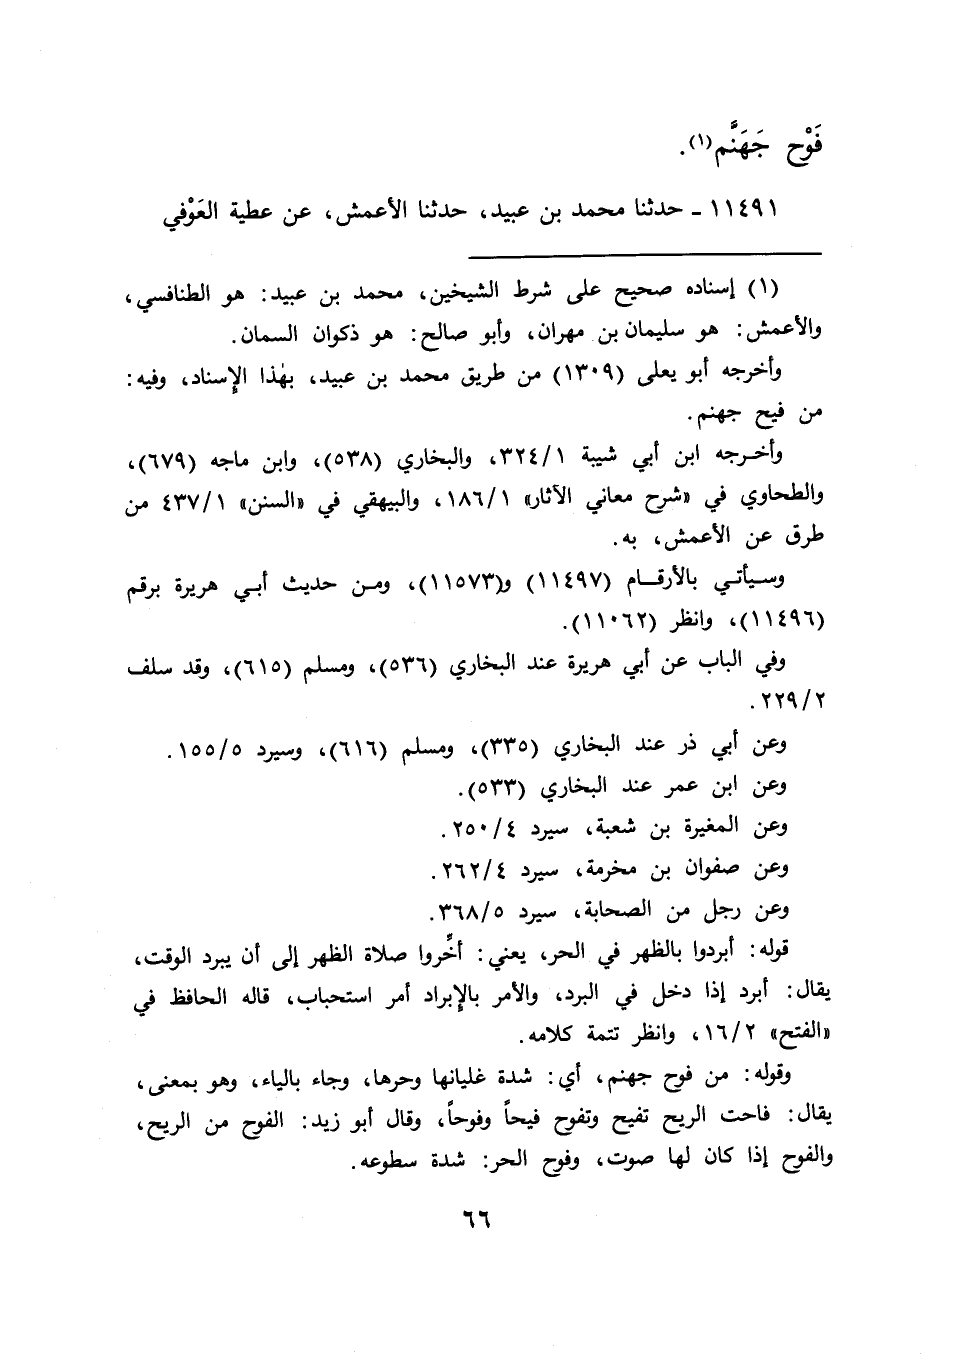 فَوْحِ جَهَنَّم(١).
١١٤٩١ ـ حدثنا محمد بن عبيد، حدثنا الأعمش، عن عطية العَوْفي
(١) إسناده صحيح على شرط الشيخين، محمد بن عبيد: هو الطنافسي،
والأعمش: هو سليمان بن مهران، وأبو صالح: هو ذكوان السمان.
وأخرجه أبو يعلى (١٣٠٩) من طريق محمد بن عبيد، بهٰذا الإِسناد، وفيه:
من فيح جهنم.
وأخرجه ابن أبي شيبة ٣٢٤/١، والبخاري (٥٣٨)، وابن ماجه (٦٧٩)،
والطحاوي في «شرح معاني الآثار» ١٨٦/١، والبيهقي في «السنن» ٤٣٧/١ من
طرق عن الأعمش، به.
وسيأتي بالأرقام (١١٤٩٧) و(١١٥٧٣)، ومن حديث أبي هريرة برقم
(١١٤٩٦)، وانظر (١١٠٦٢).
وفي الباب عن أبي هريرة عند البخاري (٥٣٦)، ومسلم (٦١٥)، وقد سلف
٢٢٩/٢.
وعن أبي ذر عند البخاري (٣٣٥)، ومسلم (٦١٦)، وسيرد ١٥٥/٥.
وعن ابن عمر عند البخاري (٥٣٣).
وعن المغيرة بن شعبة، سيرد ٢٥٠/٤.
وعن صفوان بن مخرمة، سيرد ٢٦٢/٤.
وعن رجل من الصحابة، سيرد ٣٦٨/٥.
قوله: أبردوا بالظهر في الحر، يعني: أخِّروا صلاة الظهر إلى أن يبرد الوقت،
يقال: أبرد إذا دخل في البرد، والأمر بالإِبراد أمر استحباب، قاله الحافظ في
«الفتح» ١٦/٢، وانظر تتمة كلامه.
وقوله: من فوح جهنم، أي: شدة غليانها وحرها، وجاء بالياء، وهو بمعنى،
يقال: فاحت الريح تفيح وتفوح فيحاً وفوحاً، وقال أبو زيد: الفوح من الريح،
والفوح إذا كان لها صوت، وفوح الحر: شدة سطوعه.
٦٦